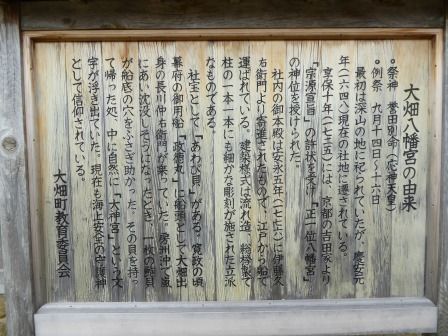 大畑八幡宮の由来
○祭神 誉田別命（応神天皇）
○例祭 九月十四日～十六日
最初は深山の地に祀られていたが、慶安元
年（一六四八）現在の社地に遷されている。
享保十年（一七二五）には、京都の吉田家より
「宗源宣旨」の許状を受け「正一位八幡宮」
の神位を授けられた。
社内の御本殿は安永五年（一七七六）に伊藤久
右衛門より寄進されたもので、江戸から船で
運ばれている。建築様式は流れ造、総欅製で
柱の一本一本にも細かな彫刻が施された立派
なものである。
社宝として「あわび貝」がある。寛政の頃
幕府の御用船「政徳丸」に船頭として大畑出
身の長川仲右衛門が乗っていた。房州沖で嵐
にあい沈没しそうになったとき、一枚の鮑貝
が船底の穴をふさぎ助かった。その貝を持っ
て帰った処、中に自然に「大神宮」という文
字が浮き出ていた。現在も海上安全の守護神
として信仰されている。
大畑町教育委員会